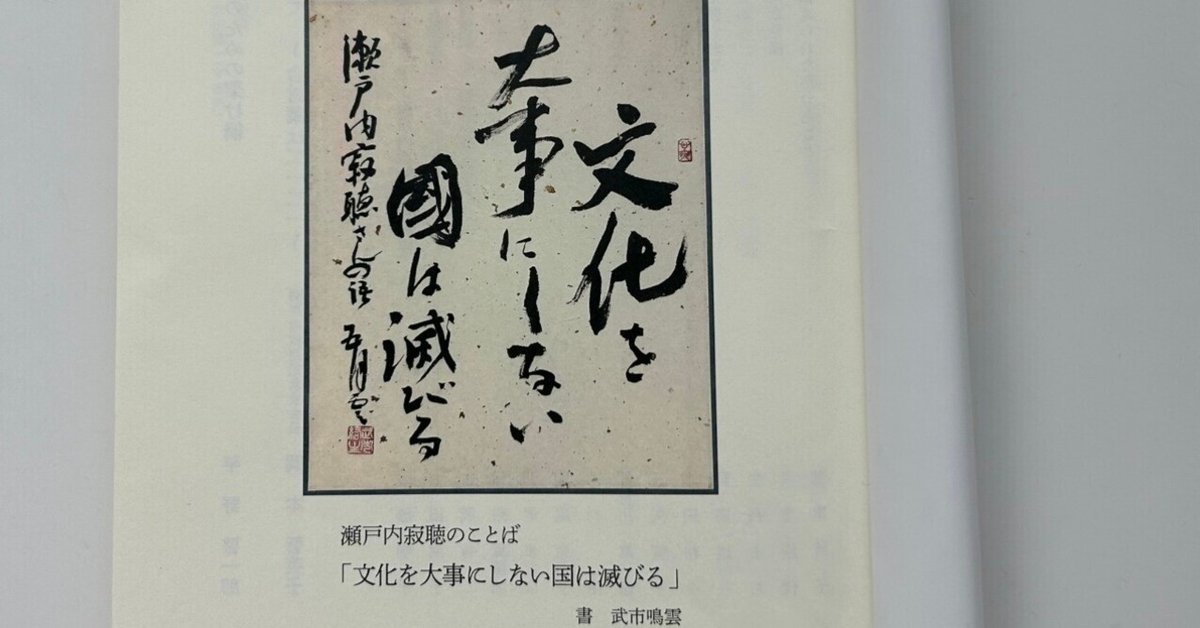 文化を
大事にしない
國は滅びる
瀬戸内寂聴さんの語
瀬戸内寂聴のことば
「文化を大事にしない国は滅びる」
書　武市鳴雲